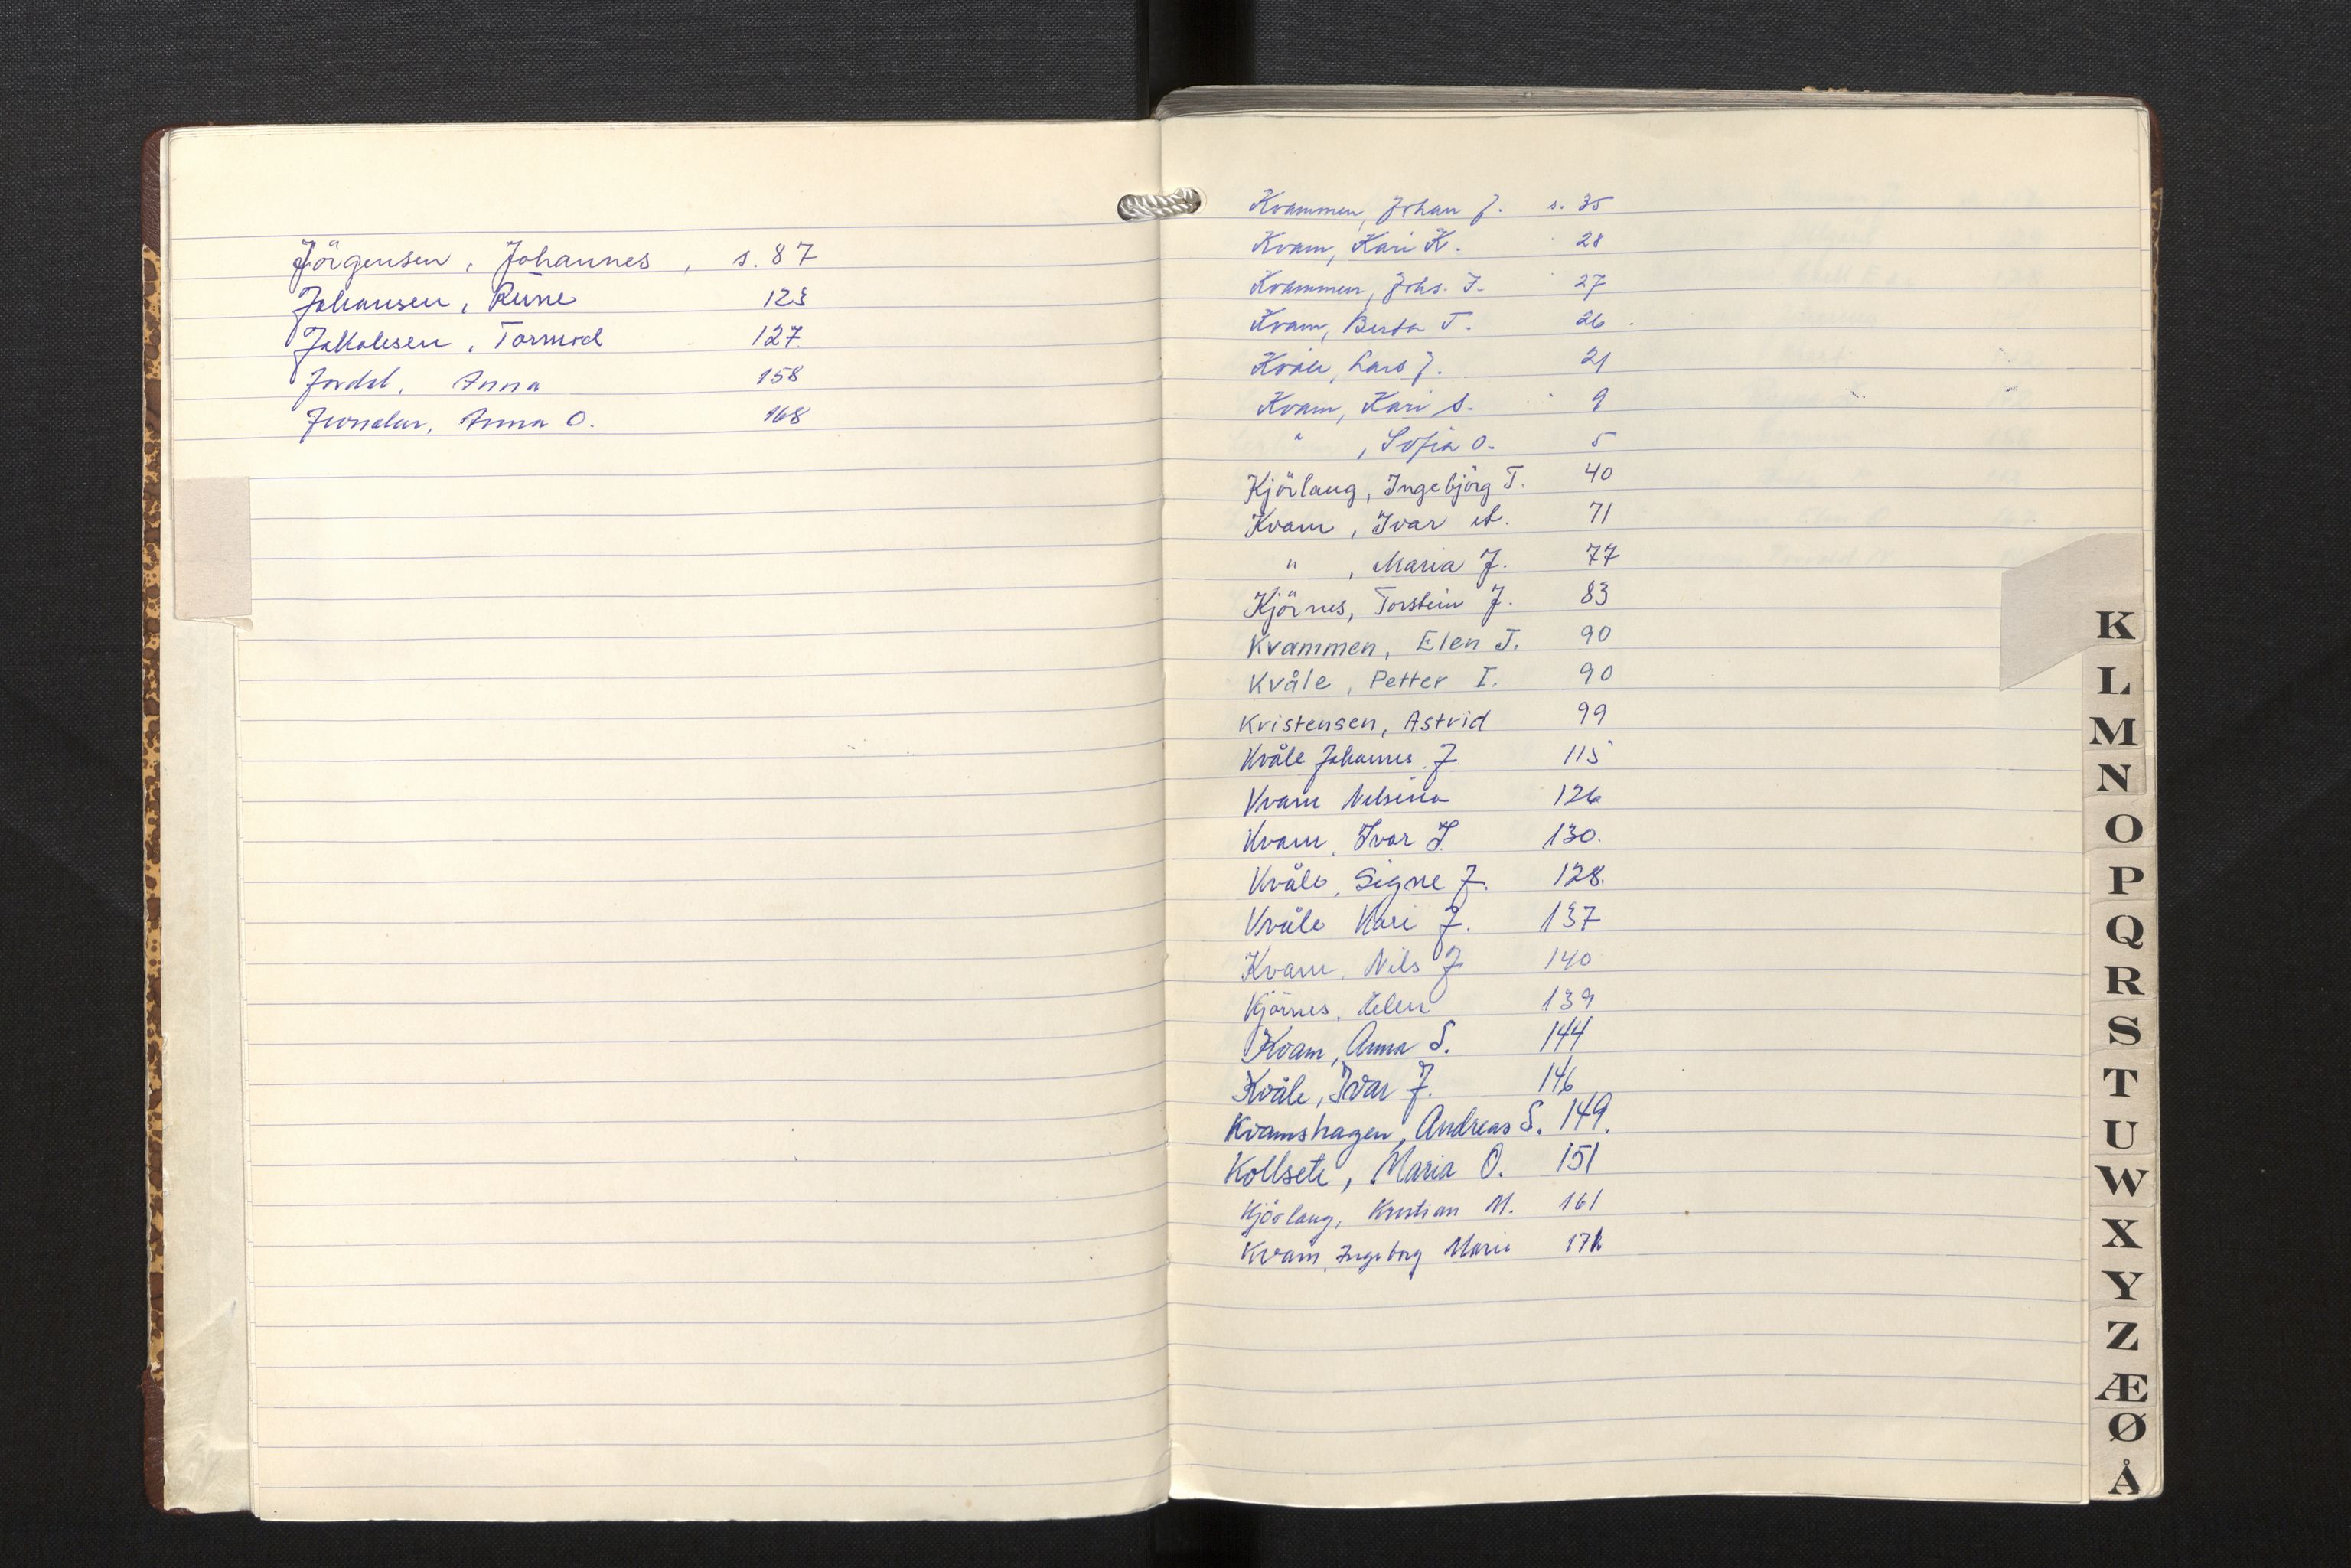 Jörgensen, Johannes, s. 87
Johansen, Rune 123
Jakobsen, Tormod 127
Jordal, Anna 158
Anna O. 168
Kvammen, Johan J. s. 35
Kvam, Kari K. 28
Kvammen, Johs. J. 27
Kvam, Berta T. 26.
Kvåle, Lars J. 21
Kvam, Kari S. 9
" , Sofia O. 5
Kjörlaug, Ingebjörg T. 40
Kvam, Ivar A. 71
" , Maria J. 77
Kjörnes, Torstein J. 83
Kvammen, Elen J. 90
Kvåle, Petter I. 90
Kristensen, Astrid 99
Kvåle Johannes J. 115
Kvam Nilsina 126
Kvam, Ivar J. 130.
Kvåle, Signe J. 128.
Kvåle Kari J. 137
Kvam, Nils J 140
Kjörnes, Elen 139
Kvam, Anna S. 144
Kvåle, Ivar J. 146
Kvamshagen, Andreas S. 149.
Kollsete, Maria O. 151
Kjörlaug, Kristian M. 161
Kvam, Ingeborg Marie
K
L
M
N
O
P
Q
R
S
T
U
W
X
Y
Z
Æ
Ø
Å